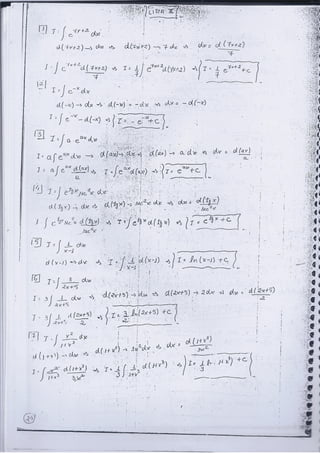 LISTA II
[1] I = ∫ e^(7x+2) dx
d(7x+2) → dx ⇒ d(7x+2) → 7 dx ⇒ dx = d(7x+2)/7
I = ∫ e^(7x+2) d(7x+2)/7 ⇒ I = 1/7 ∫ e^(7x+2) d(7x+2) ⇒ I = 1/7 e^(7x+2) + C
[2] I = ∫ e^-x dx
d(-x) → dx ⇒ d(-x) = -dx ⇒ dx = -d(-x)
I = ∫ e^-x - d(-x) ⇒ I = - e^-x + C
[3] I = ∫ a e^ax dx
I = a ∫ e^ax dx → d(ax) → dx ⇒ d(ax) → a dx ⇒ dx = d(ax)/a
I = a ∫ e^ax d(ax)/a ⇒ I = ∫ e^ax d(ax) ⇒ I = e^ax + C
[4] I = ∫ e^tgx sec²x dx
d(tgx) → dx ⇒ d(tgx) → sec²x dx ⇒ dx = d(tgx)/sec²x
I = ∫ e^tgx sec²x d(tgx)/sec²x ⇒ I = ∫ e^tgx d(tgx) ⇒ I = e^tgx + C
[5] I = ∫ 1/(x-1) dx
d(x-1) → dx ⇒ I = ∫ 1/(x-1) d(x-1) ⇒ I = ln(x-1) + C
[6] I = ∫ 3/(2x+5) dx
I = 3 ∫ 1/(2x+5) dx ⇒ d(2x+5) → dx ⇒ d(2x+5) → 2dx ⇒ dx = d(2x+5)/2
I = 3 ∫ 1/(2x+5) d(2x+5)/2 ⇒ I = 3/2 ln(2x+5) + C
[7] I = ∫ x²/(1+x³) dx
d(1+x³) → dx ⇒ d(1+x³) → 3x² dx ⇒ dx = d(1+x³)/3x²
I = ∫ x²/(1+x³) d(1+x³)/3x² ⇒ I = 1/3 ∫ 1/(1+x³) d(1+x³) ⇒ I = 1/3 ln(1+x³) + C